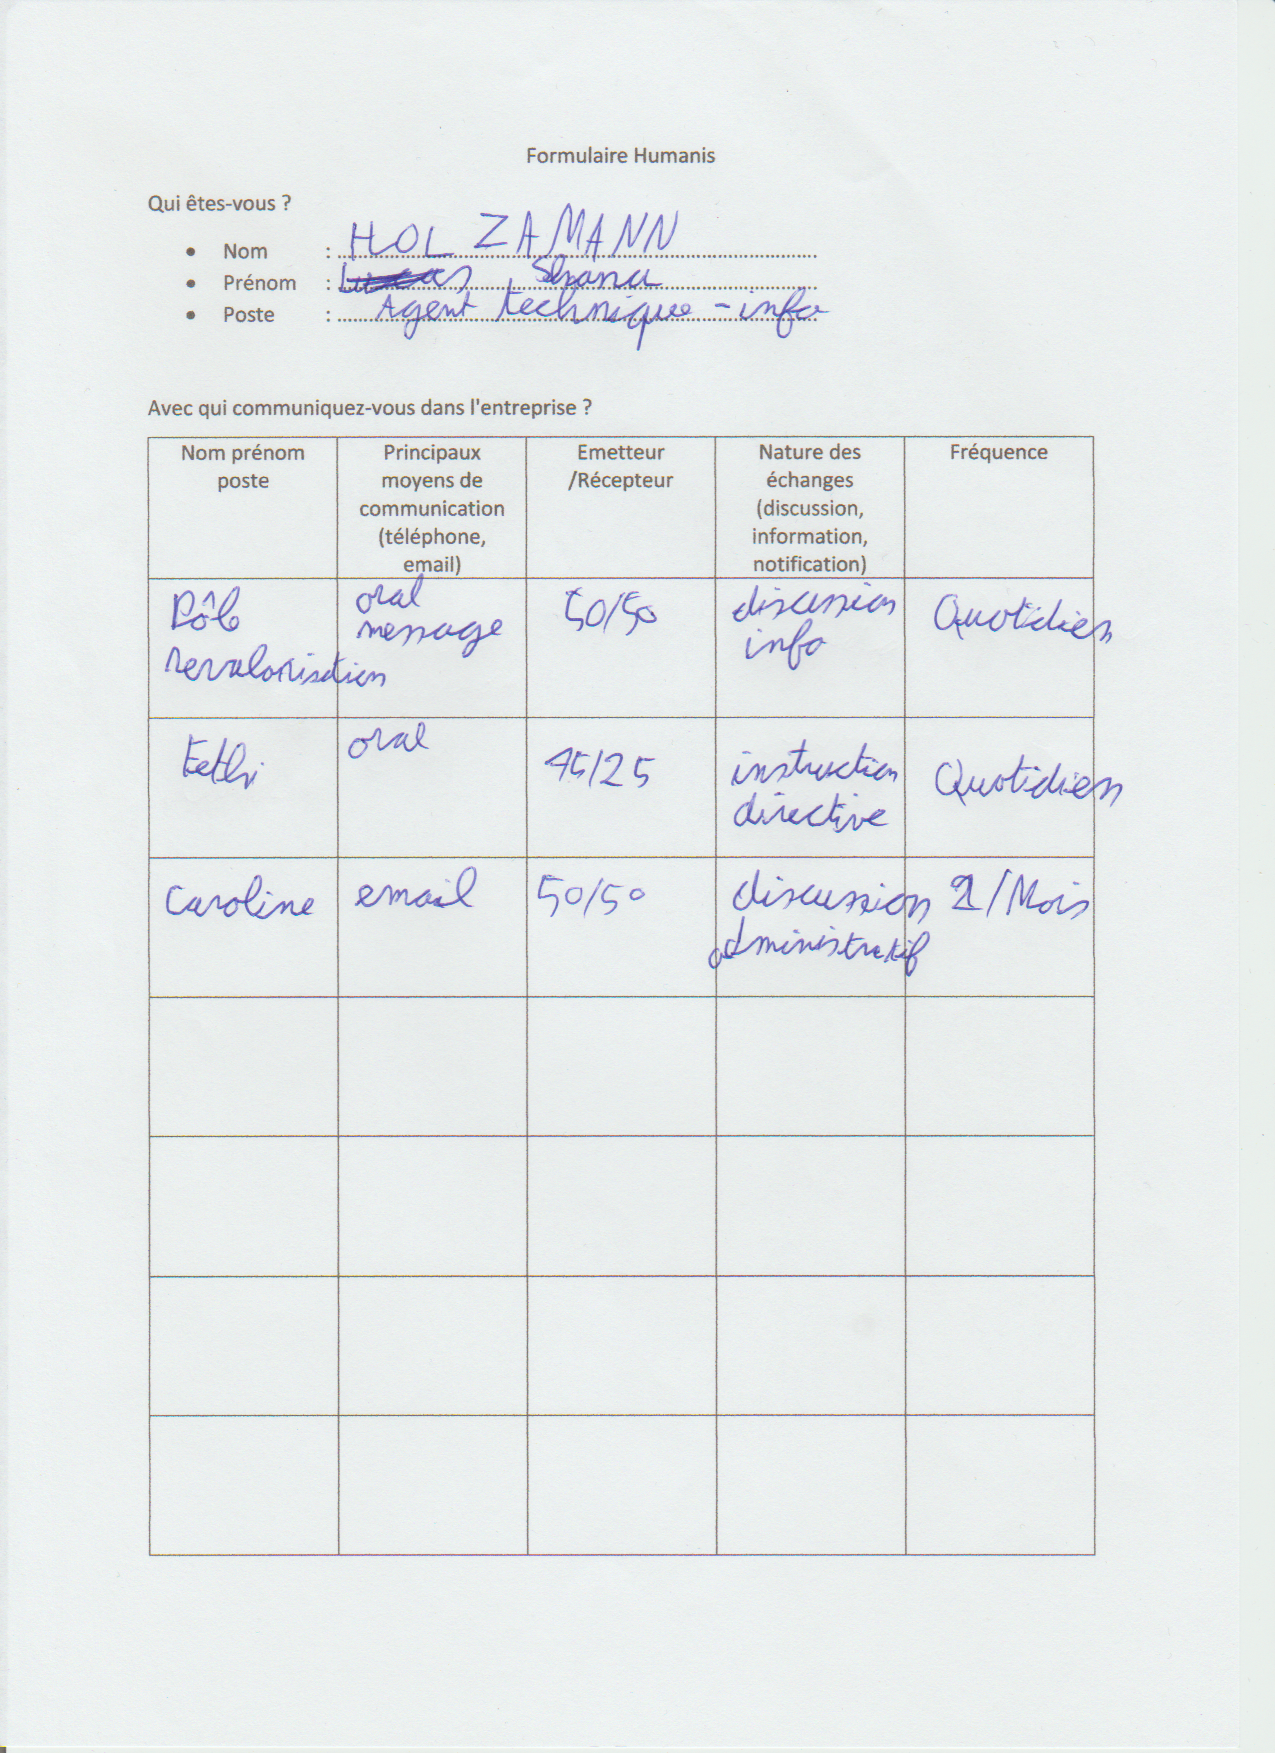 Formulaire Humanis
Qui êtes-vous ?
• Nom : HOLZAMANN
• Prénom : Shana
• Poste : Agent technique - info
Avec qui communiquez-vous dans l'entreprise ?
Nom prénom
poste
Principaux
moyens de
communication
(téléphone,
email)
Emetteur
/Récepteur
Nature des
échanges
(discussion,
information,
notification)
Fréquence
Pôle
revalorisation
oral
message
50/50
discussion
info
Quotidien
Fethi
oral
75/25
instruction
directive
Quotidien
Caroline
email
50/50
discussion
administratif
/Mois